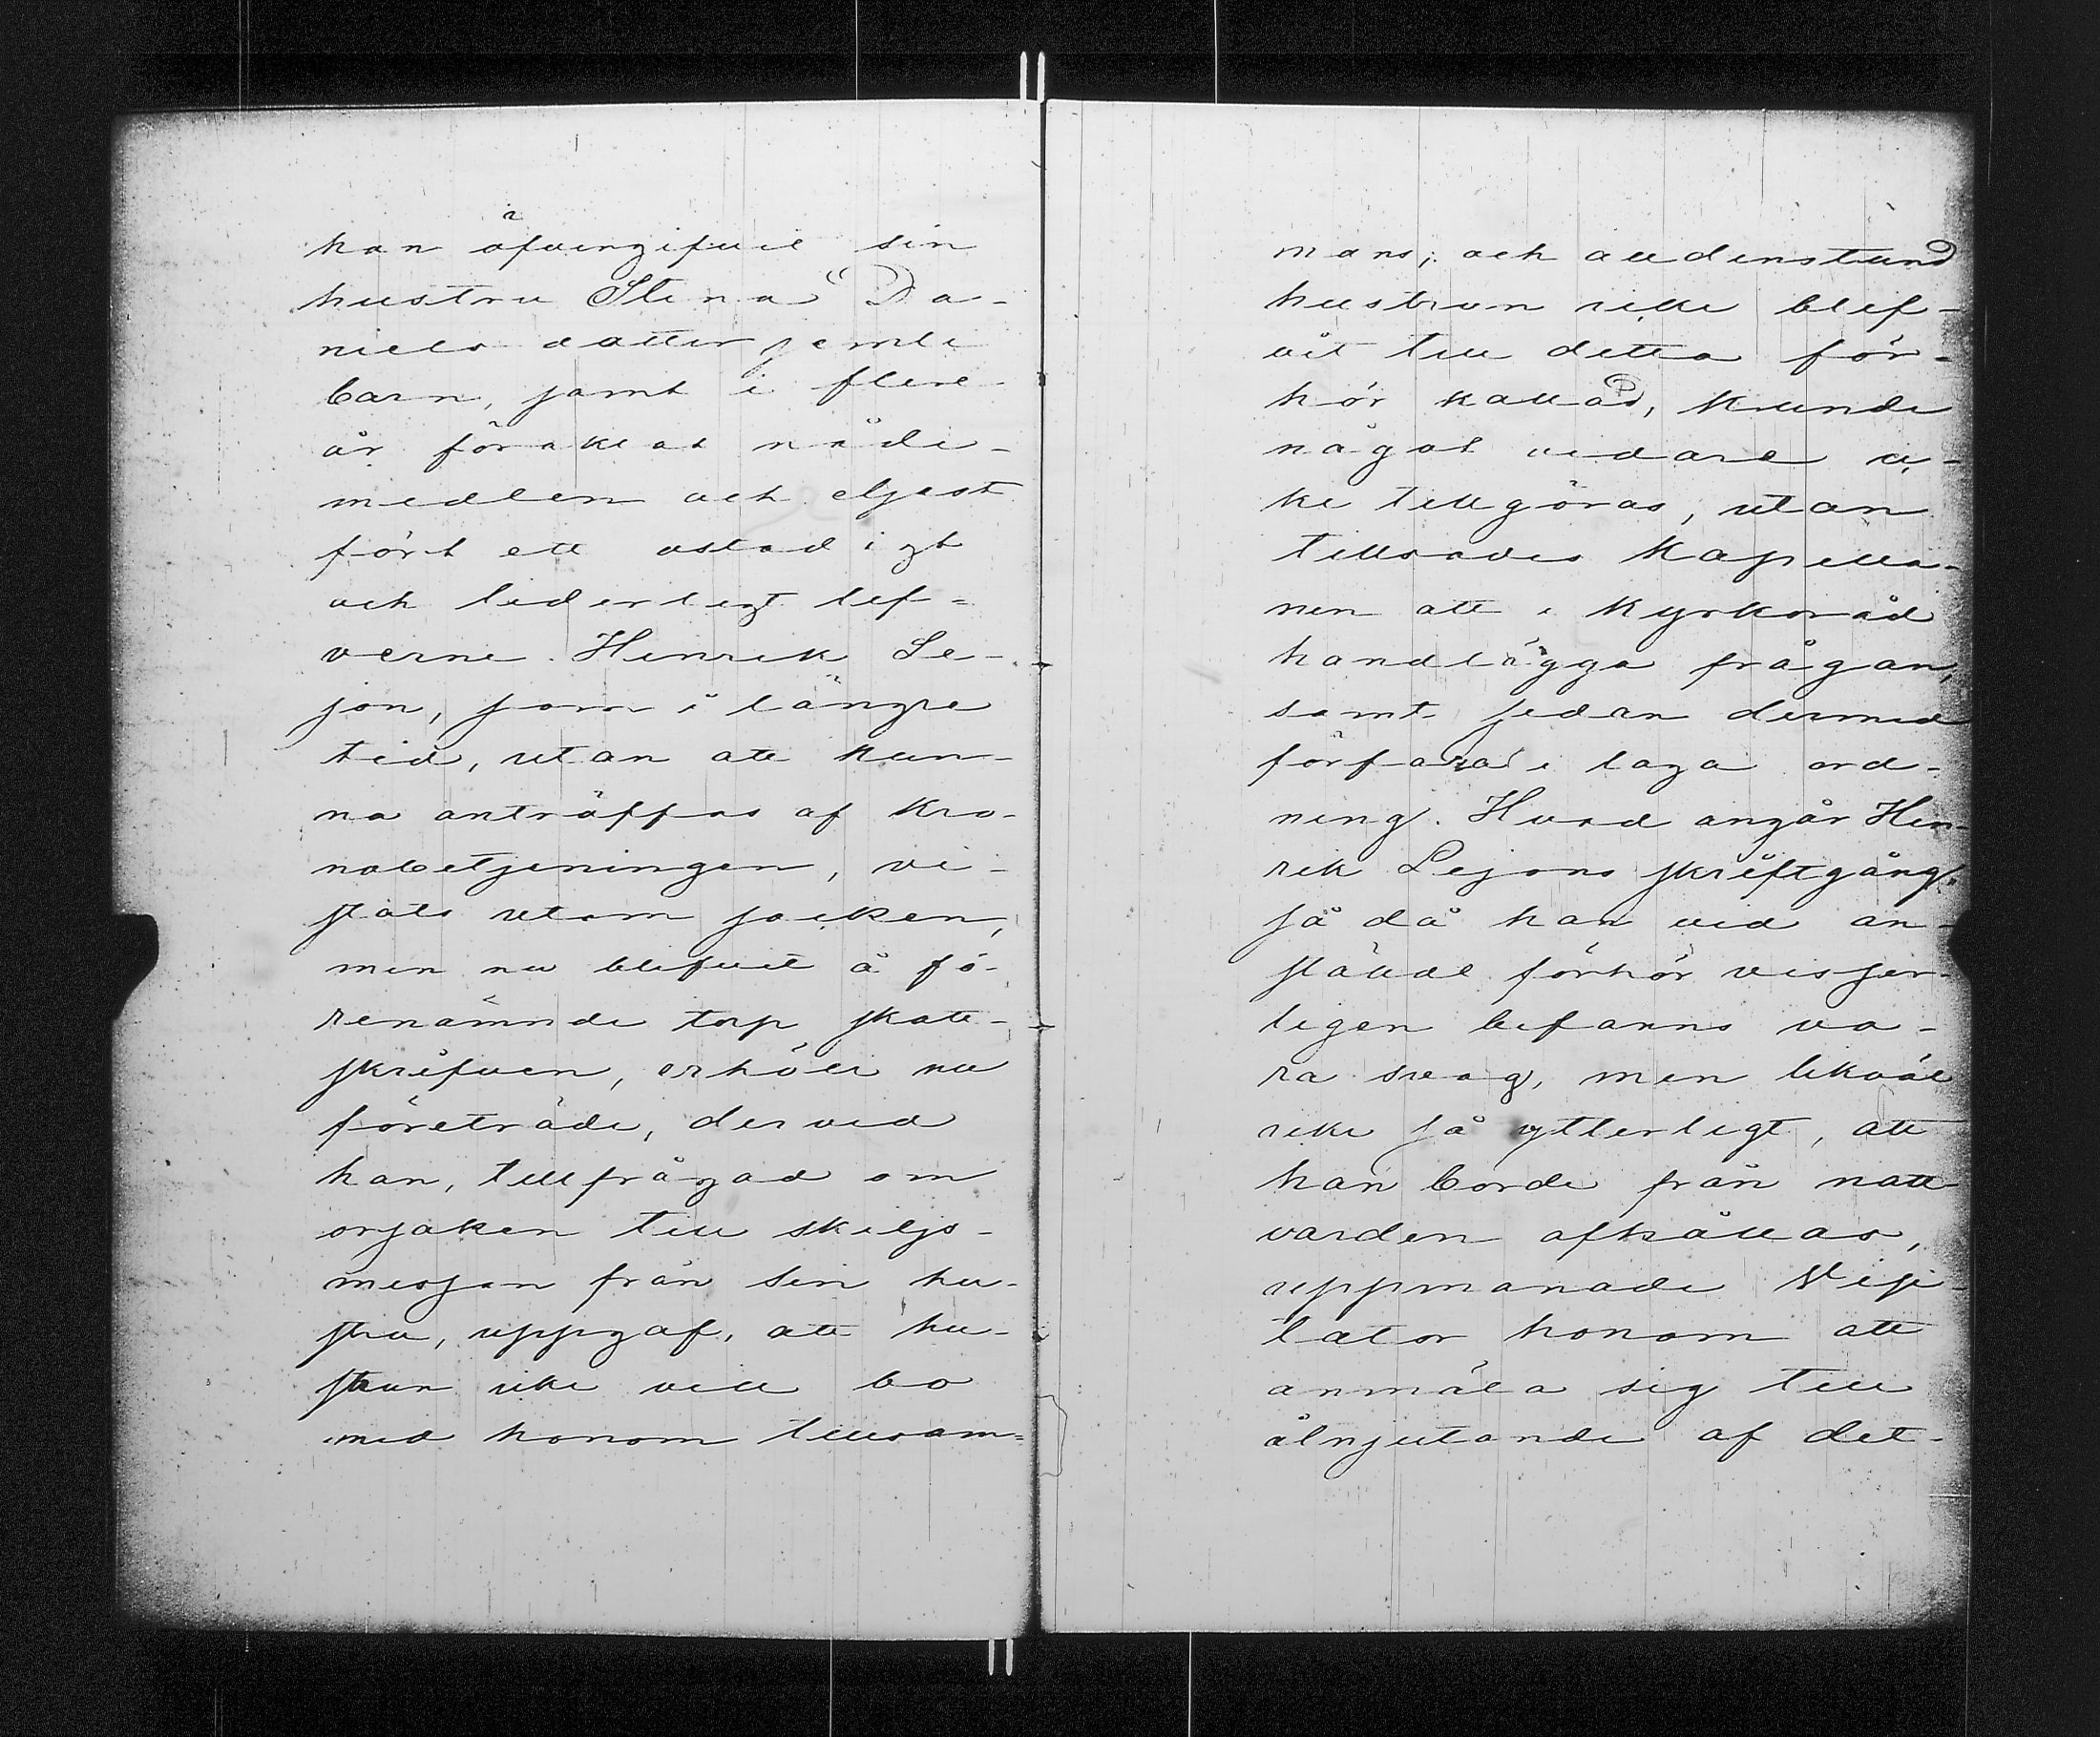 han öfvergifvit sin
hustru Stina Da-
niels dotter jemte
barn, samt i flere
år försakat nåde-
medlen och eljest
fört ett ostadigt
och liderligt lef-
verne. Henrik Le-
jon, som i längre
tid, utan att kun-
na anträffas af kro-
nobetjeningen, vi-
stats utom socken,
men nu blifvit å fö-
renämnde torp skatt-
skrifven, erhöll nu
företräde, dervid
han, tillfrågad om
orsaken till skiljs-
messan från sin hu-
stru, uppgaf, att hu-
strun icke vill bo
med honom tillsam-
mans; och alldenstund
hustrun icke blif-
vit till detta för-
hör kallad, kunde
något vidare ic-
ke tillgöras, utan
tillsades Kapella-
nen att i Kyrkoråd
handlägga frågan,
samt sedan dermed
förfara i laga ord-
ning. Hvad angår Hen-
rik Lejons skriftgång,
så då han vid an-
stäldt förhör visser-
ligen befanns va-
ra svag, men likväl
icke så ytterligt, att
han borde från natt-
varden afhållas,
uppmanade Visi-
tator honom att
anmäla sig till
åtnjutande af det-